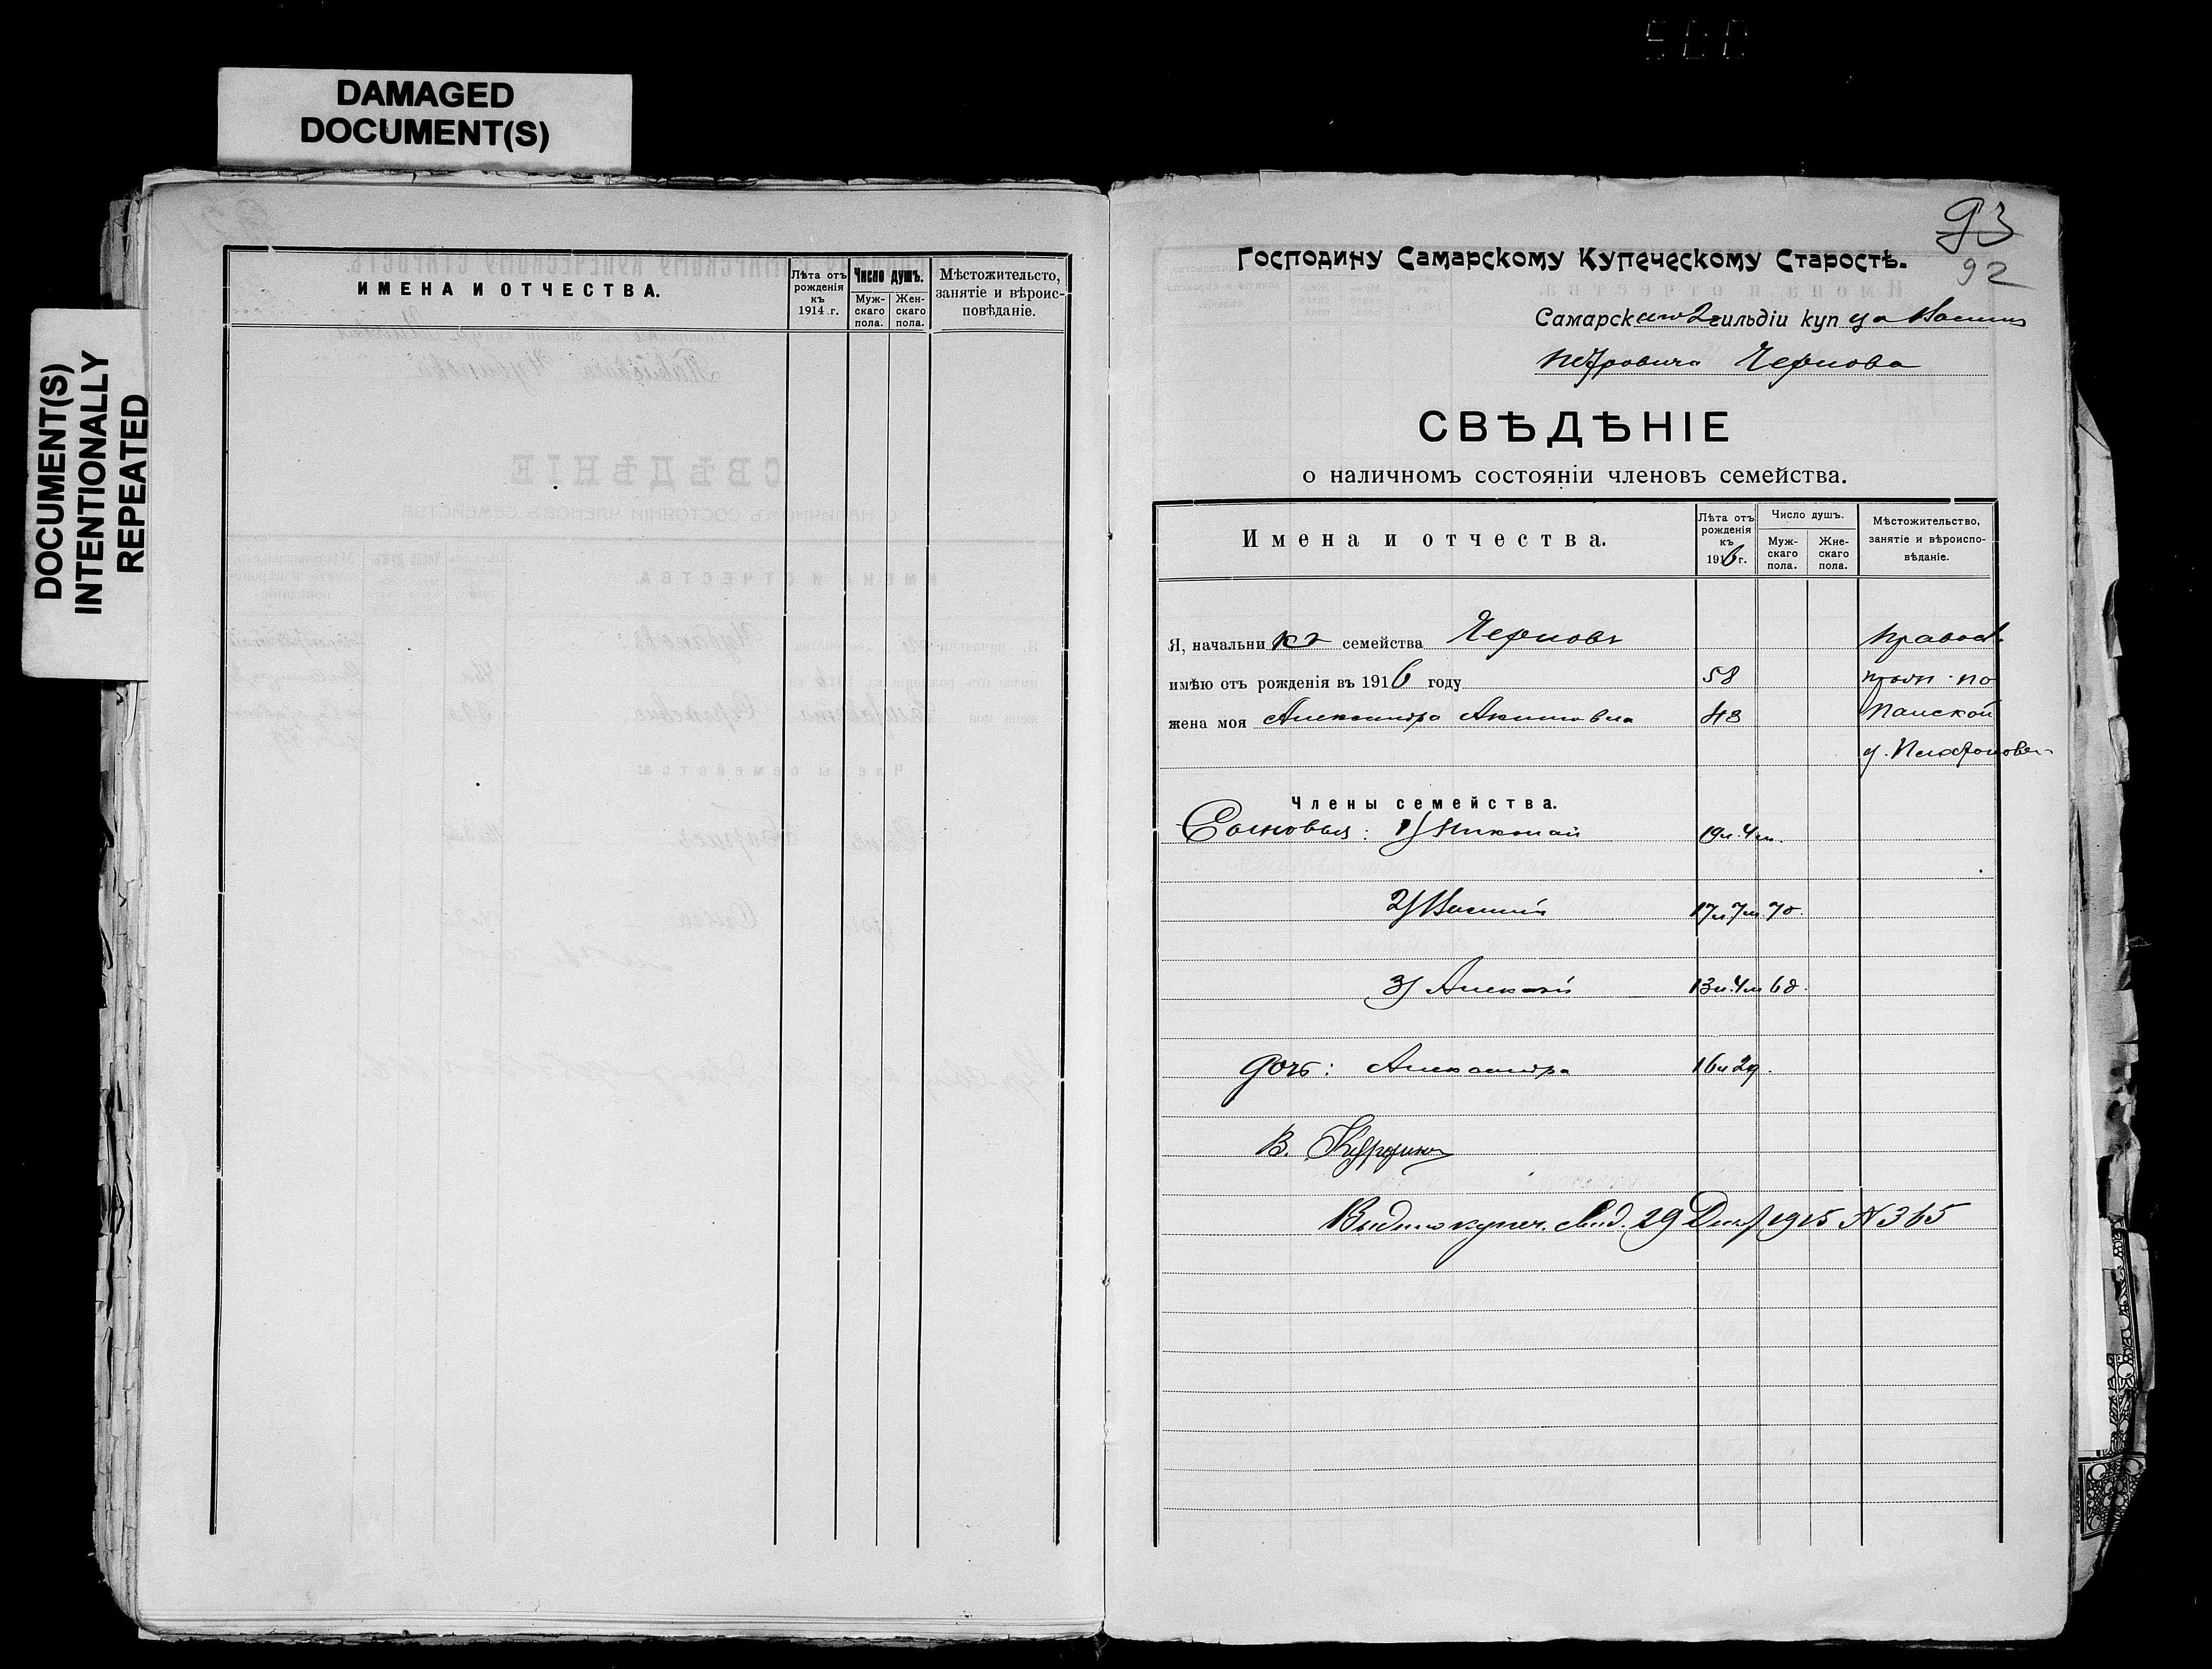 500
DAMAGED
DOCUMENT(S)
DOCUMENT(S)
INTENTIONALLY
REPEATED
ИМЕНА И ОТЧЕСТВА.
Лѣта отъ рожденія къ 1914 г.
Число душъ.
Муж-скаго пола.
Жен-скаго пола.
Мѣстожительсто, занятіе и вѣроис-повѣданіе.
93
92
Господину Самарскому Купеческому Старостѣ.
Самарскаго 2 гильдіи купца Василія
Петровича Чернова
СВѢДѢНІЕ
о наличномъ состояніи членовъ семейства.
Имена и отчества.
Лѣта отъ рожденія къ 1916 г.
Число душъ.
Муж-скаго пола.
Жне-скаго пола.
Мѣстожительство, занятіе и вѣроиспо-вѣданіе.
Я, начальникъ семейства Черновъ Правос.
имѣю отъ рожденія въ 1916 году 58 по
жена моя Александра Акимовна 48 Панской
д.
Члены семейства.
Сыновья: 1) Николай 19л. 4м.
2) Василій 17л. 7м. 7д.
3) Алексѣй 13л. 4м 6д.
дочь: Александра 16л 2д.
В.
Выдано купеч. свид. 29 Дек. 1915 N 365